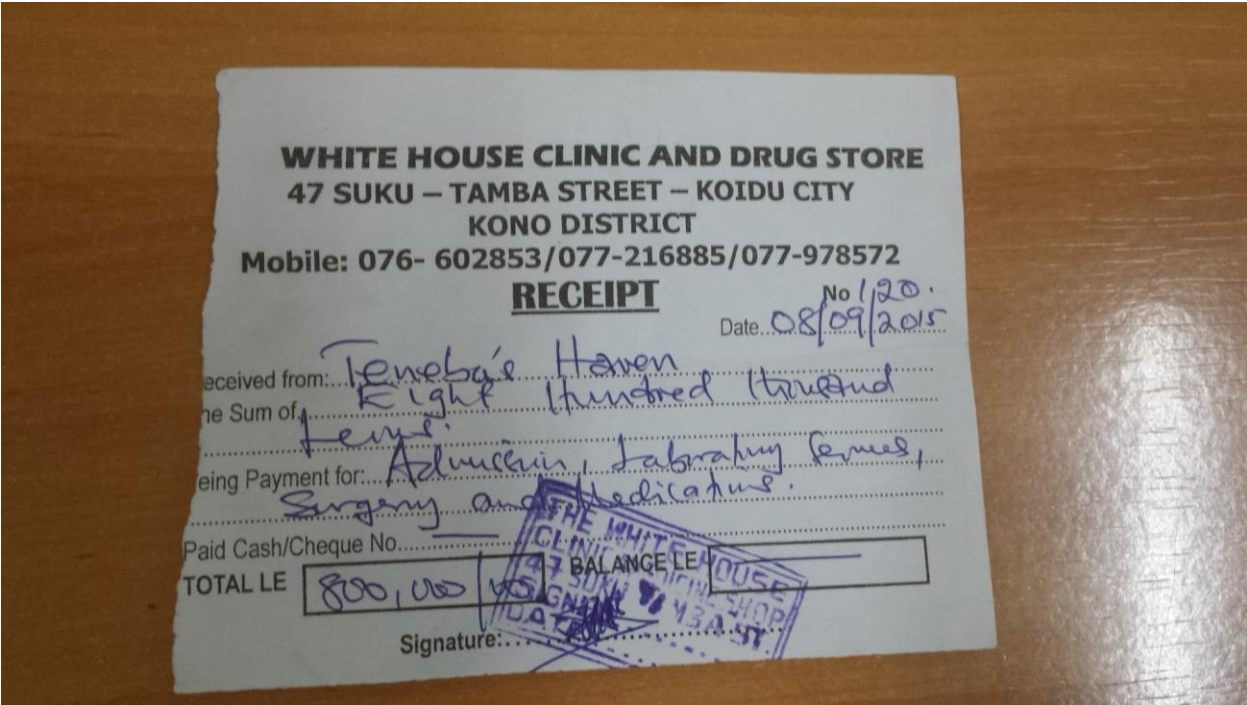 WHITE HOUSE CLINIC AND DRUG STORE
47 SUKU – TAMBA STREET – KOIDU CITY
KONO DISTRICT
Mobile: 076- 602853/077-216885/077-978572
RECEIPT
No 120.
Date..08/09/2015
eceived from:...Teneba's Haven
he Sum of...Eight Hundred thousand
Leones.
eing Payment for:...Admission, Laboratory Services,
Surgery and Medications.
Paid Cash/Cheque No....
TOTAL LE 800,000/00 BALANCE LE
Signature:....
THE WHITE HOUSE
CLINIC MEDICINE SHOP
47 SUKU ST
SIGN
DATE